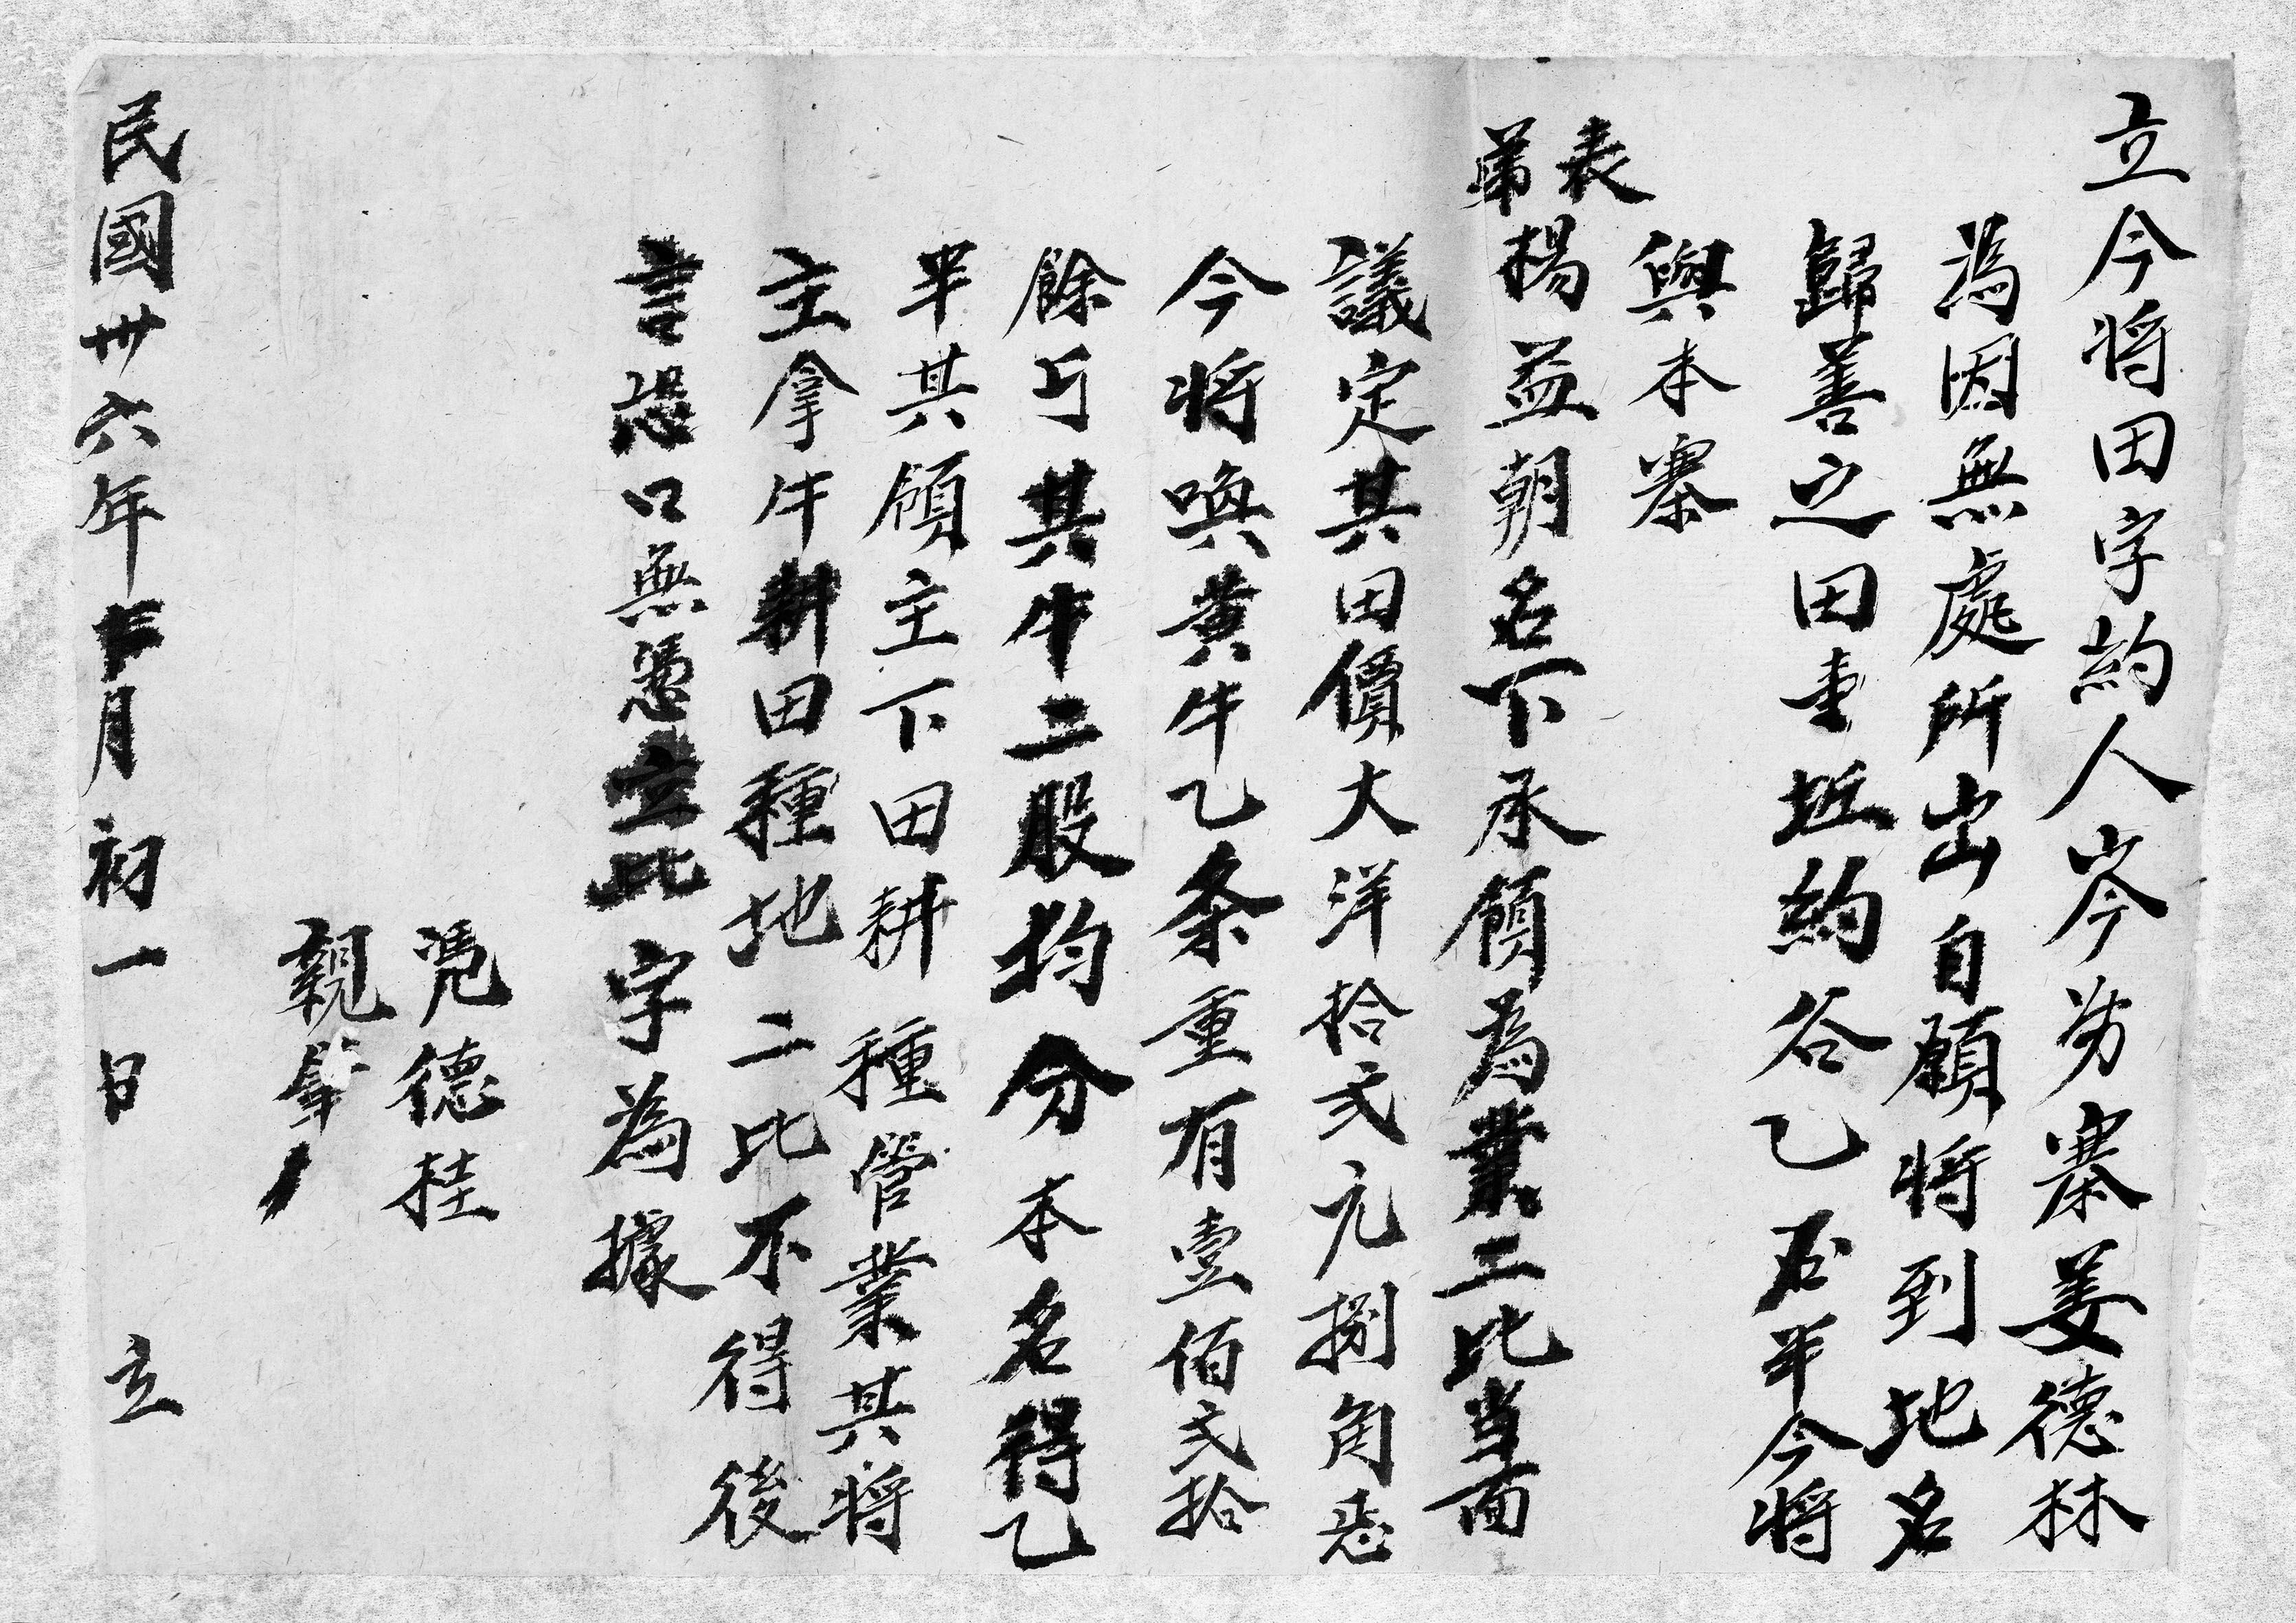 立今将田字約人岑努寨姜德林
為因無處所出自願将到地名
歸善之田壹坵約谷乙石半今将
與本寨
表弟楊益朝名下承領為業二比当面
議定其田價大洋拾弍元捌角悉
今将喚黄牛乙条重有壹佰弍拾
餘斤其牛二股均分本名得乙
半其領主下田耕種管業其将
主拿牛耕田種地二比不得後
言恐口無憑立此字為據
凴德桂
親筆
民國卅六年 月初一日 立